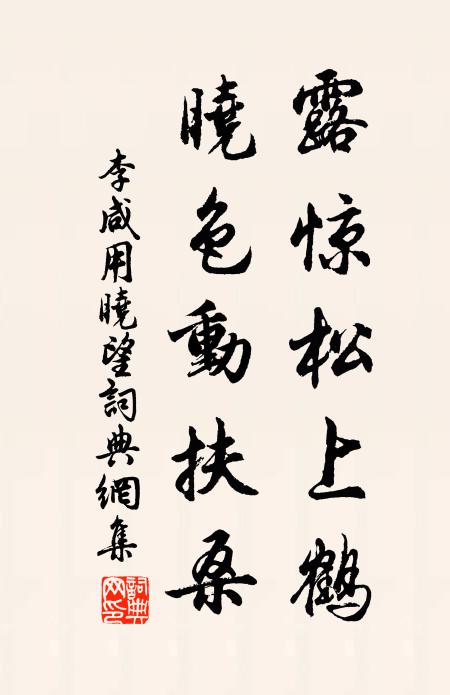 露惊松上鶴
曉色動扶桑
李咸用曉望詞典網集
詞典網印